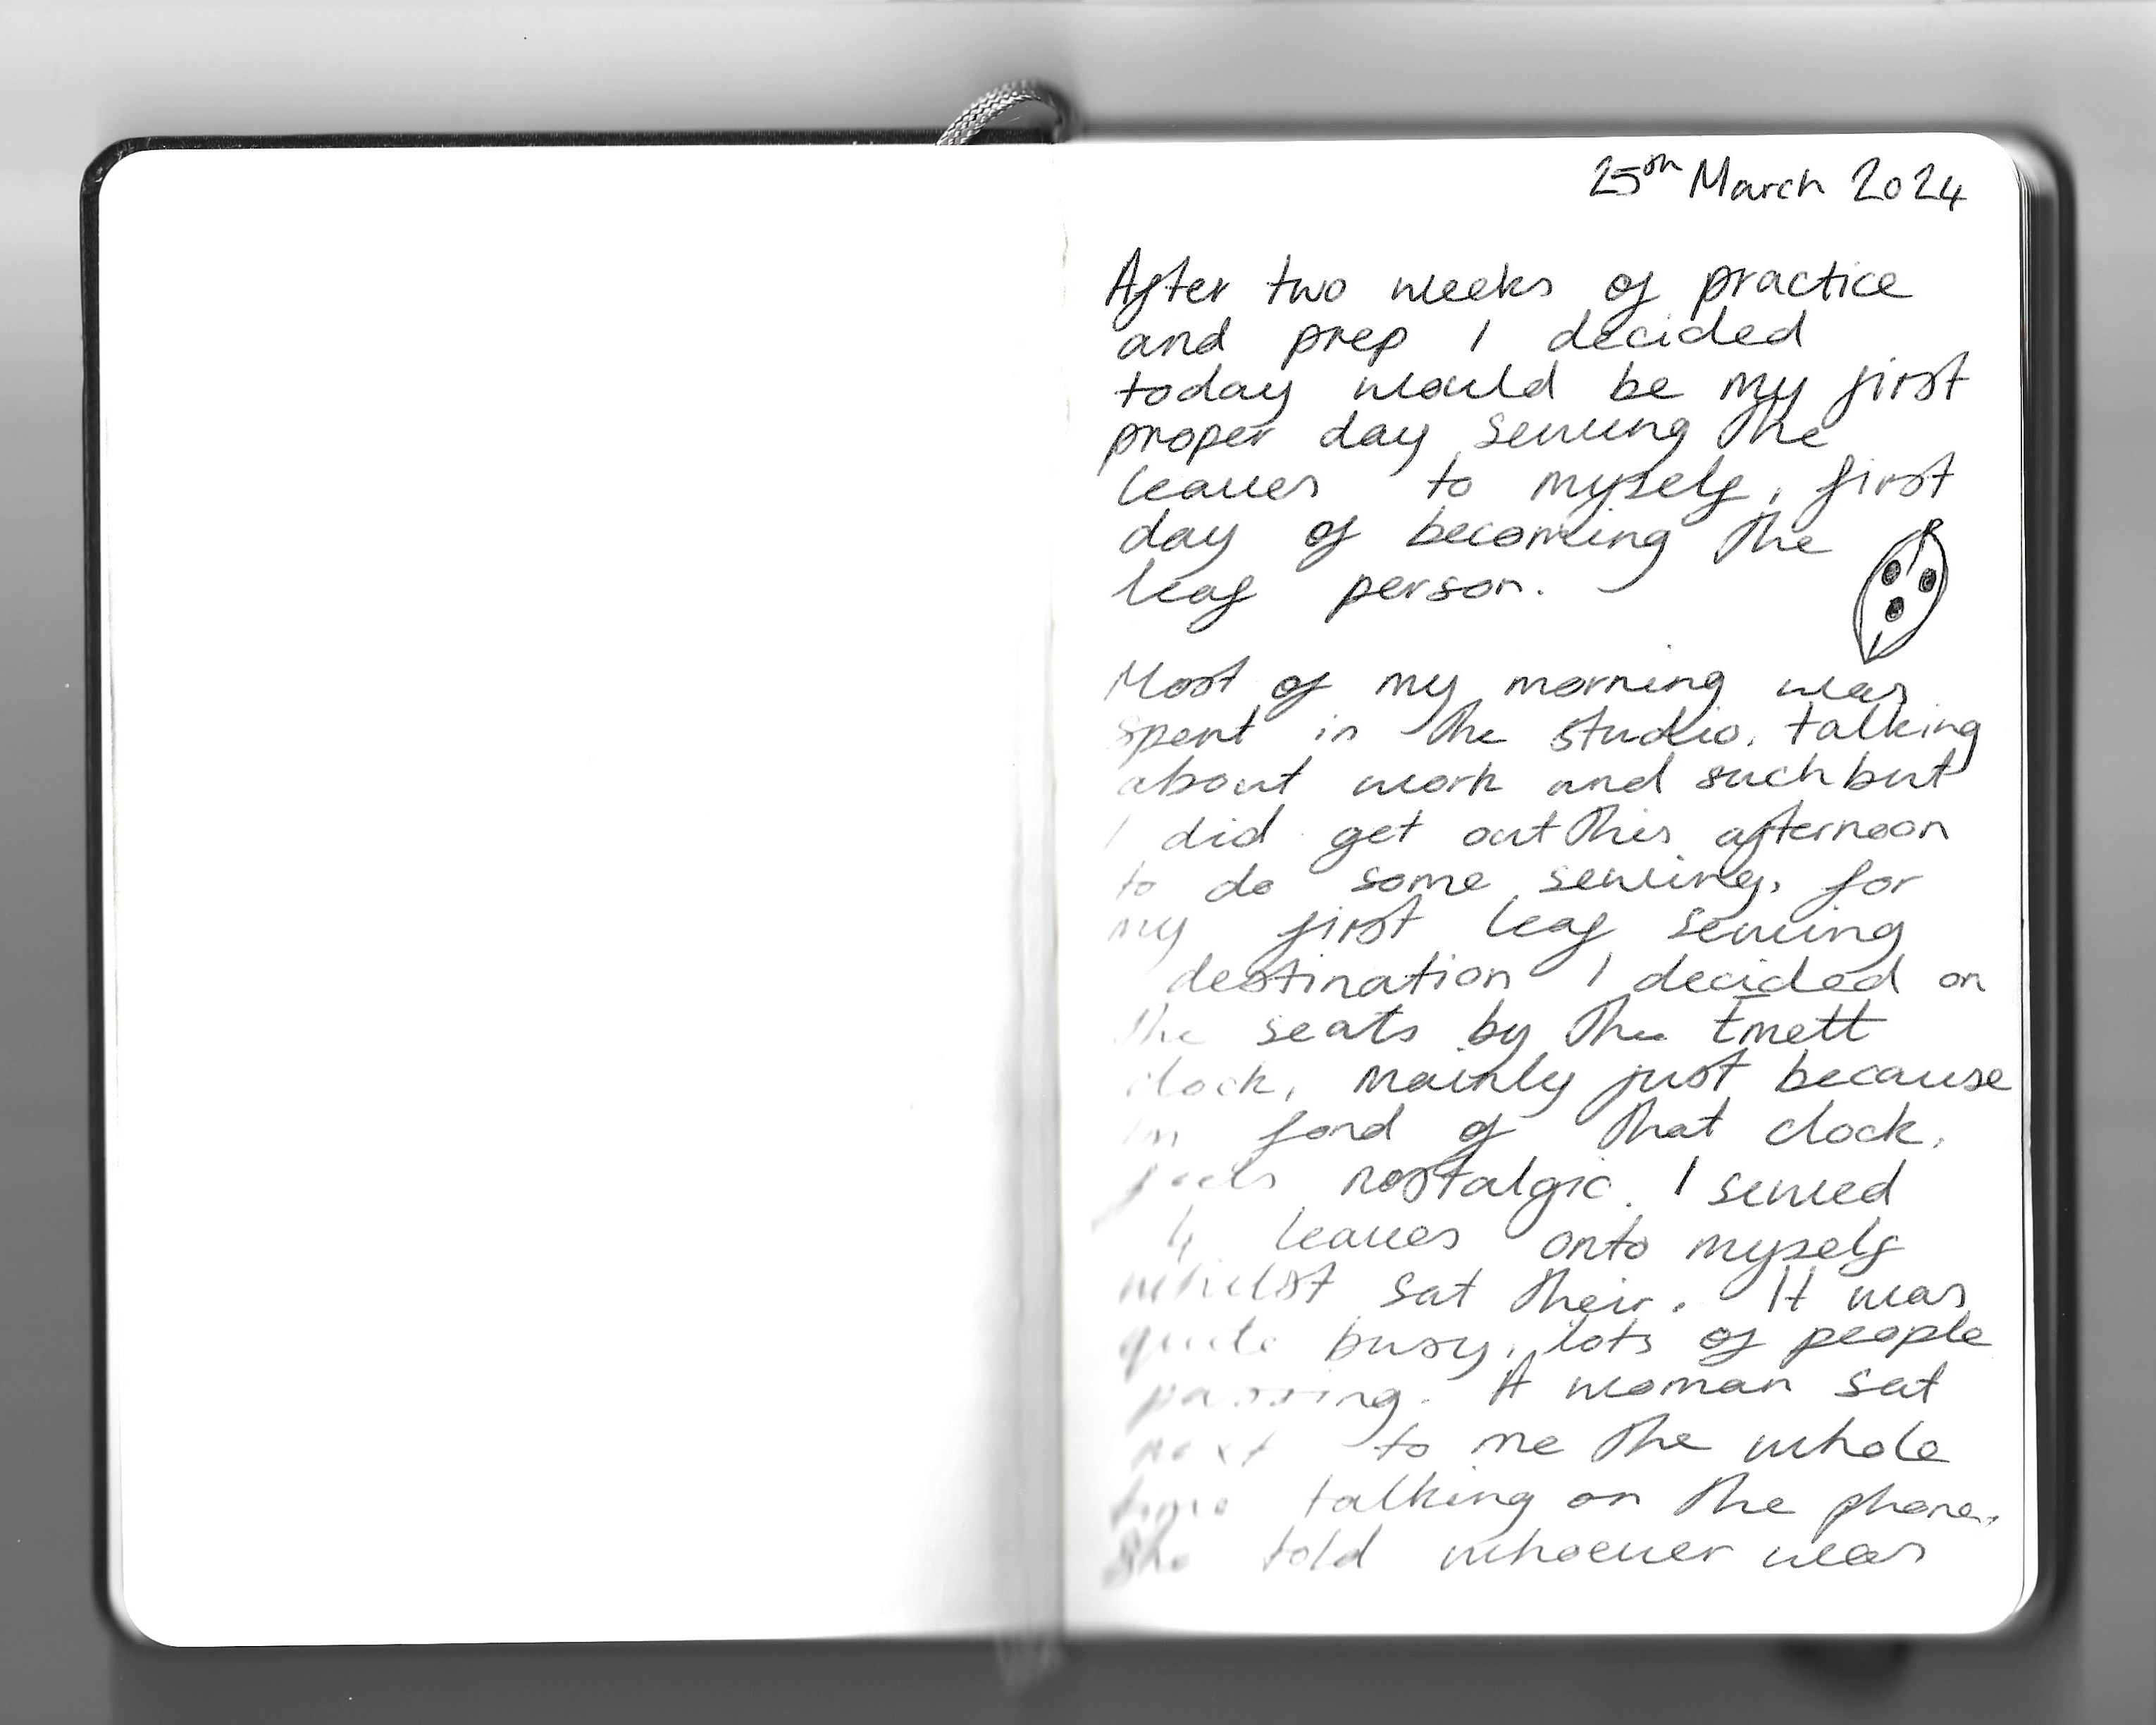 25th March 2024
After two weeks of practice
and prep I decided
today would be my first
proper day sewing the
leaves to myself, first
day of becoming the
leaf person.
Most of my morning was
spent in the studio, talking
about work and such but
I did get out this afternoon
to do some sewing, for
my first leaf sewing
destination I decided on
the seats by the Emett
clock, mainly just because
im fond of that clock,
feels nostalgic. I sewed
4 leaves onto myself
whilst sat their. It was
quite busy, lots of people
passing. A woman sat
next to me the whole
time talking on the phone.
She told whoever was